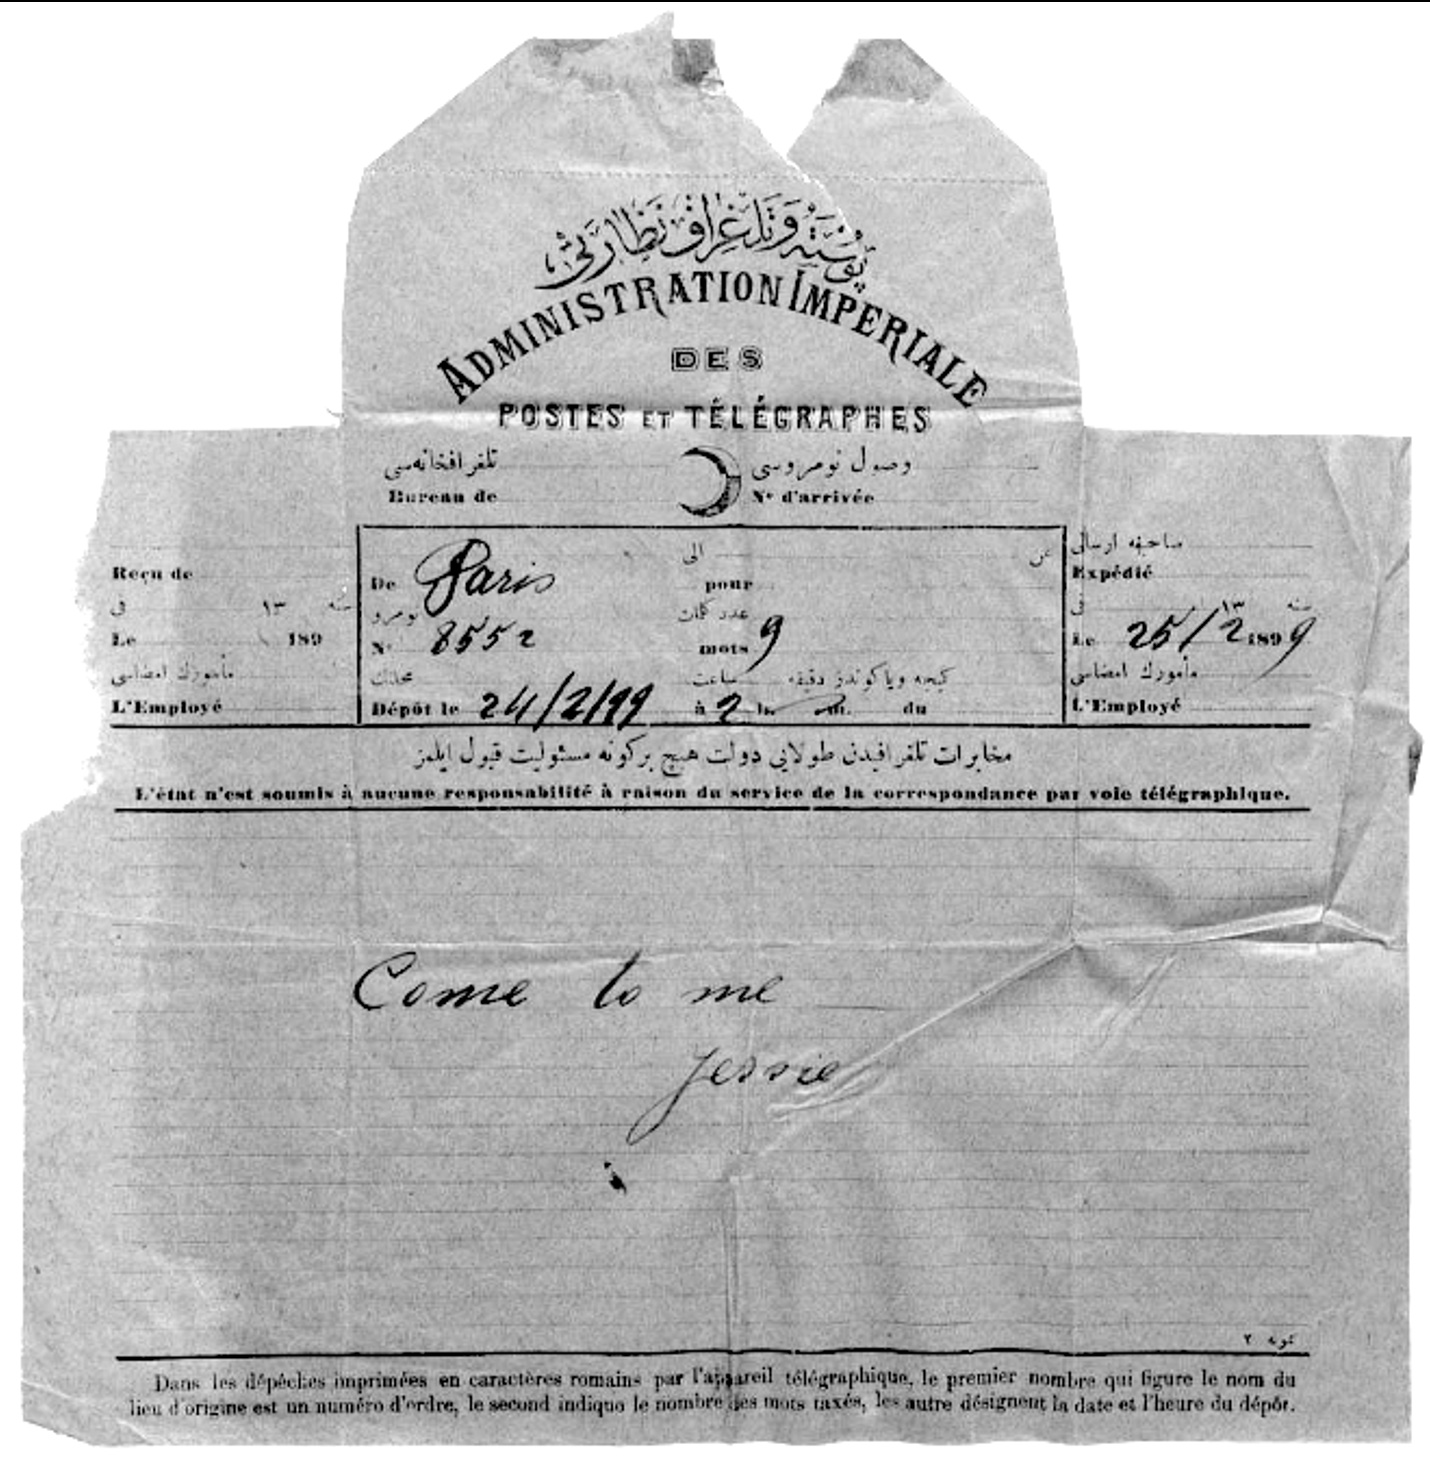 پوسته و تلغراف نظارتی
ADMINISTRATION IMPERIALE
DES
POSTES ET TÉLÉGRAPHES
تلغرافخانه‌سی وصول نومروسی
Bureau de Nº d'arrivée
الی عن ارسالی
Reçu de De Paris pour Expédié
فی ١٣ سنه نومرو عدد كلمات فی ١٣ سنه
Le 189 Nº 8552 mots 9 Le 25/2 1899
مأمورك امضاسی ساعت كیجه ویا كوندز دقیقه مأمورك امضاسی
L'Employé Dépôt le 24/2/99 à 2 h. m. du L'Employé
مخابرات تلغرافیدن طولایی دولت هیچ برگونه مسئولیت قبول ایلمز
L'état n'est soumis à aucune responsabilité à raison du service de la correspondance par voie télégraphique.
Come to me
Jessie
٢
Dans les dépêches imprimées en caractères romains par l'appareil télégraphique, le premier nombre qui figure le nom du
lieu d'origine est un numéro d'ordre, le second indique le nombre des mots taxés, les autre désignent la date et l'heure du dépôt.